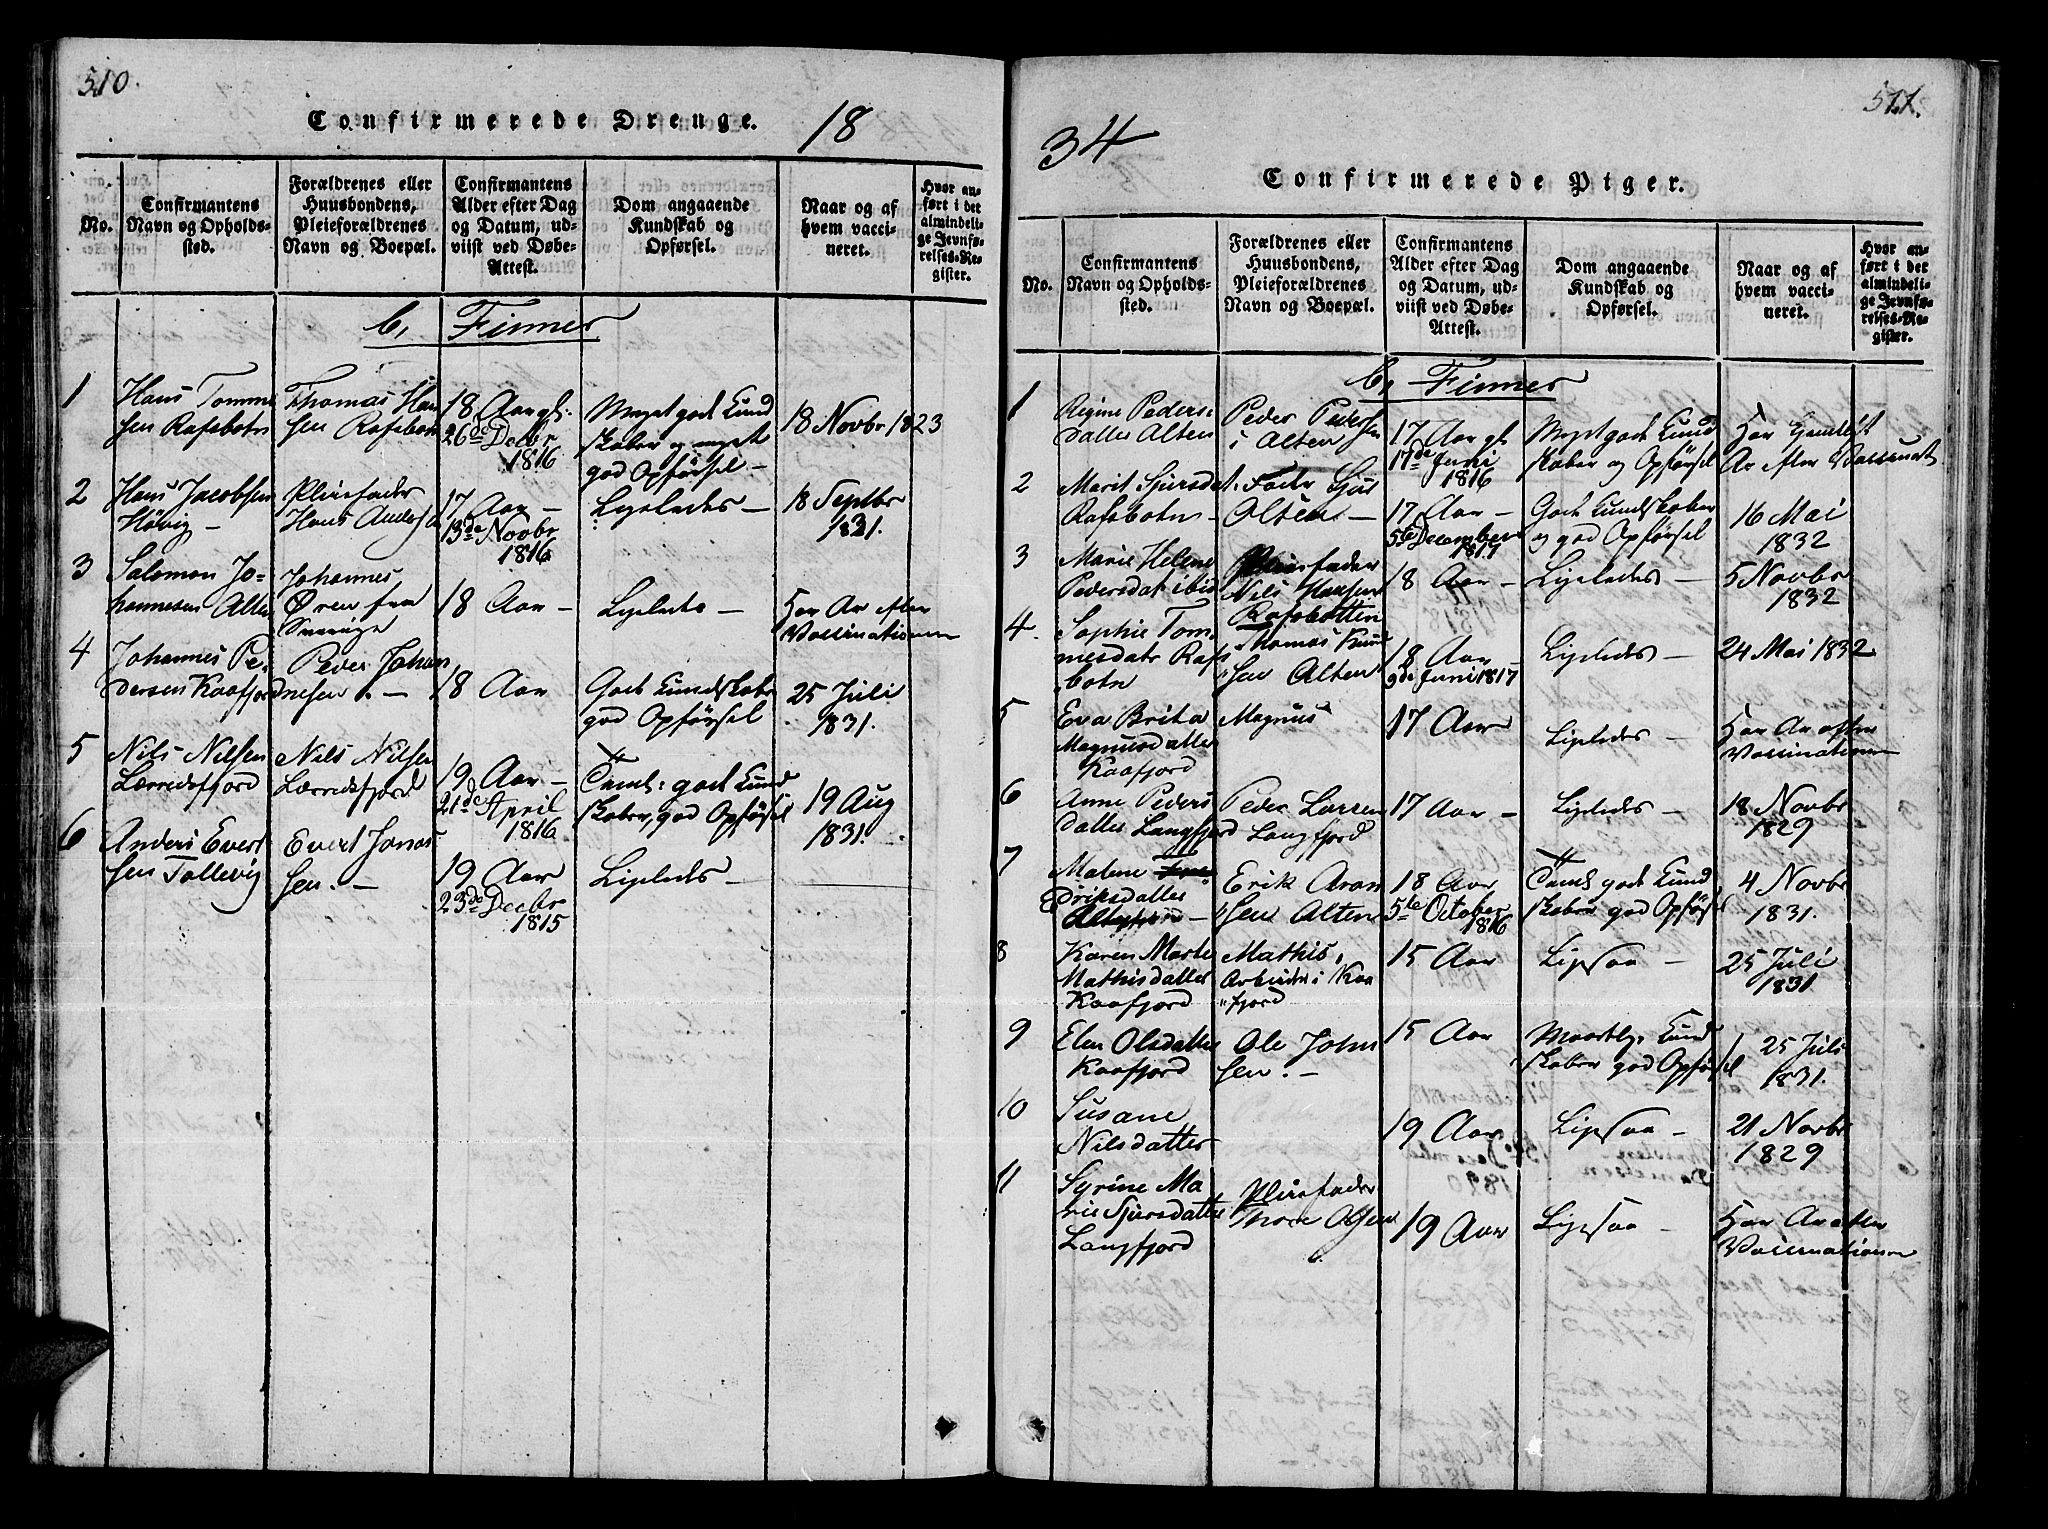 510.
Confirmerede Drenge.
18
No.
Confirmantens
Navn og Opholds-
sted.
Forældrenes eller
Huusbondens,
Pleieforældrenes
Navn og Boepæl.
Confirmantens
Alder efter Dag
og Datum, ud-
viist ved Døbe-
Attest.
Dom angaaende
Kundskab og
Opførsel.
Naar og af
hvem vacci-
neret.
Hvor an-
ført i det
almindeli-
ge Jevnfø-
relses-Re-
gister.
b, Finner
1
Hans Tomme
sen Rafsbotn
Thomas Han
sen Rafsbotn
18 Aar gl:
26de Decbr
1816
Meget god Kund
skaber og meget
god Opførsel -
18 Novbr 1823
2
Hans Jacobsen
Høvig -
Pleiefader
Hans Anders
17 Aar -
13de Novbr
1816
Ligeledes -
18 Septbr
1831.
3
Salomon Jo-
hannesen Alten
Johannes
Ören fra
Sverrige
18 Aar -
Ligeleds -
Har Ar efter
Vaccinationen
4
Johannes Pe-
dersen Kaafjord
Peder Johan
nesen. -
18 Aar
Gode Kundskaber
god Opførsel
25 Juli
1831.
5
Nils Nilsen
Lærredsfjord
Nils Nilsen
Lærredsfjord
19 Aar -
21de April
1816
Taml: gode Kund
skaber, god Opførsel
19 Aug
1831.
6
Anders Evert
sen Tallevig
Evert Jonas
sen. -
19 Aar
23de Decbr
1815
Ligeleds -
511.
34
Confirmerede Piger.
No.
Confirmantens
Navn og Opholds-
sted.
Forældrenes eller
Huusbondens,
Pleieforældrenes
Navn og Boepæl.
Confirmantens
Alder efter Dag
og Datum, ud-
viist ved Døbe-
Attest.
Dom angaaende
Kundskab og
Opførsel.
Naar og af
hvem vacci-
neret.
Hvor an-
ført i det
almindeli-
ge Jevnfø-
relses-Re-
gister.
b, Finner
1
Regine Peders-
datter Alten
Peder Pedersen
i Alten
17 Aar gl
17de Juni
1816
Meget gode Kund
skaber og Opførsel
Har
Ar efter Vaccinat
2
Marit Sjursdat
Rafsbotn -
Fader Sjur
Olsen -
17 Aar -
5te December
1817
Gode Kundskaber
og god Opførsel
16 Mai
1832
3
Marie Helene
Pedersdat ibid
Pleiefader
Nils Hansen
Rafsbotten
18 Aar -
Ligeledes -
5 Novbr
1832
4.
Sophie Tom-
mesdatr Rafs
botn
Thomas Knud
sen Alten
18 Aar
9de Juni 1817
Ligeledes -
24 Mai 1832
5
Eva Brita
Magnusdatter
Kaafjord
Magnus
17 Aar
Ligeledes -
Har Ar efter
Vaccinationen
6
Anne Peders
datter Langfjord
Peder Larsen
Langfjord
17 Aar -
Ligeledes -
18 Novbr
1829
7
Malene
Eriksdatter
Erik Aron
sen Alten
18 Aar
5te October
1816
Taml gode Kund
skaber god Opførsel
4 Novbr
1831.
8
Karen Marte
Mathisdatter
Kaafjord
Mathis,
Arbeider i Kaa
fjord
15 Aar
Ligesaa -
25 Juli
1831.
9
Elen Olsdatter
Kaafjord
Ole John
sen. -
15 Aar
Maadelige Kund
skaber god Opførsel
25 Juli
1831.
10
Susane
Nilsdatter
19 Aar
Ligesaa -
21 Novbr
1829
11
Syrine Ma
rie Sjursdatter
Langfjord
Pleiefader
Thore Olsen
19 Aar
Ligesaa -
Har Ar efter
Vaccinationen